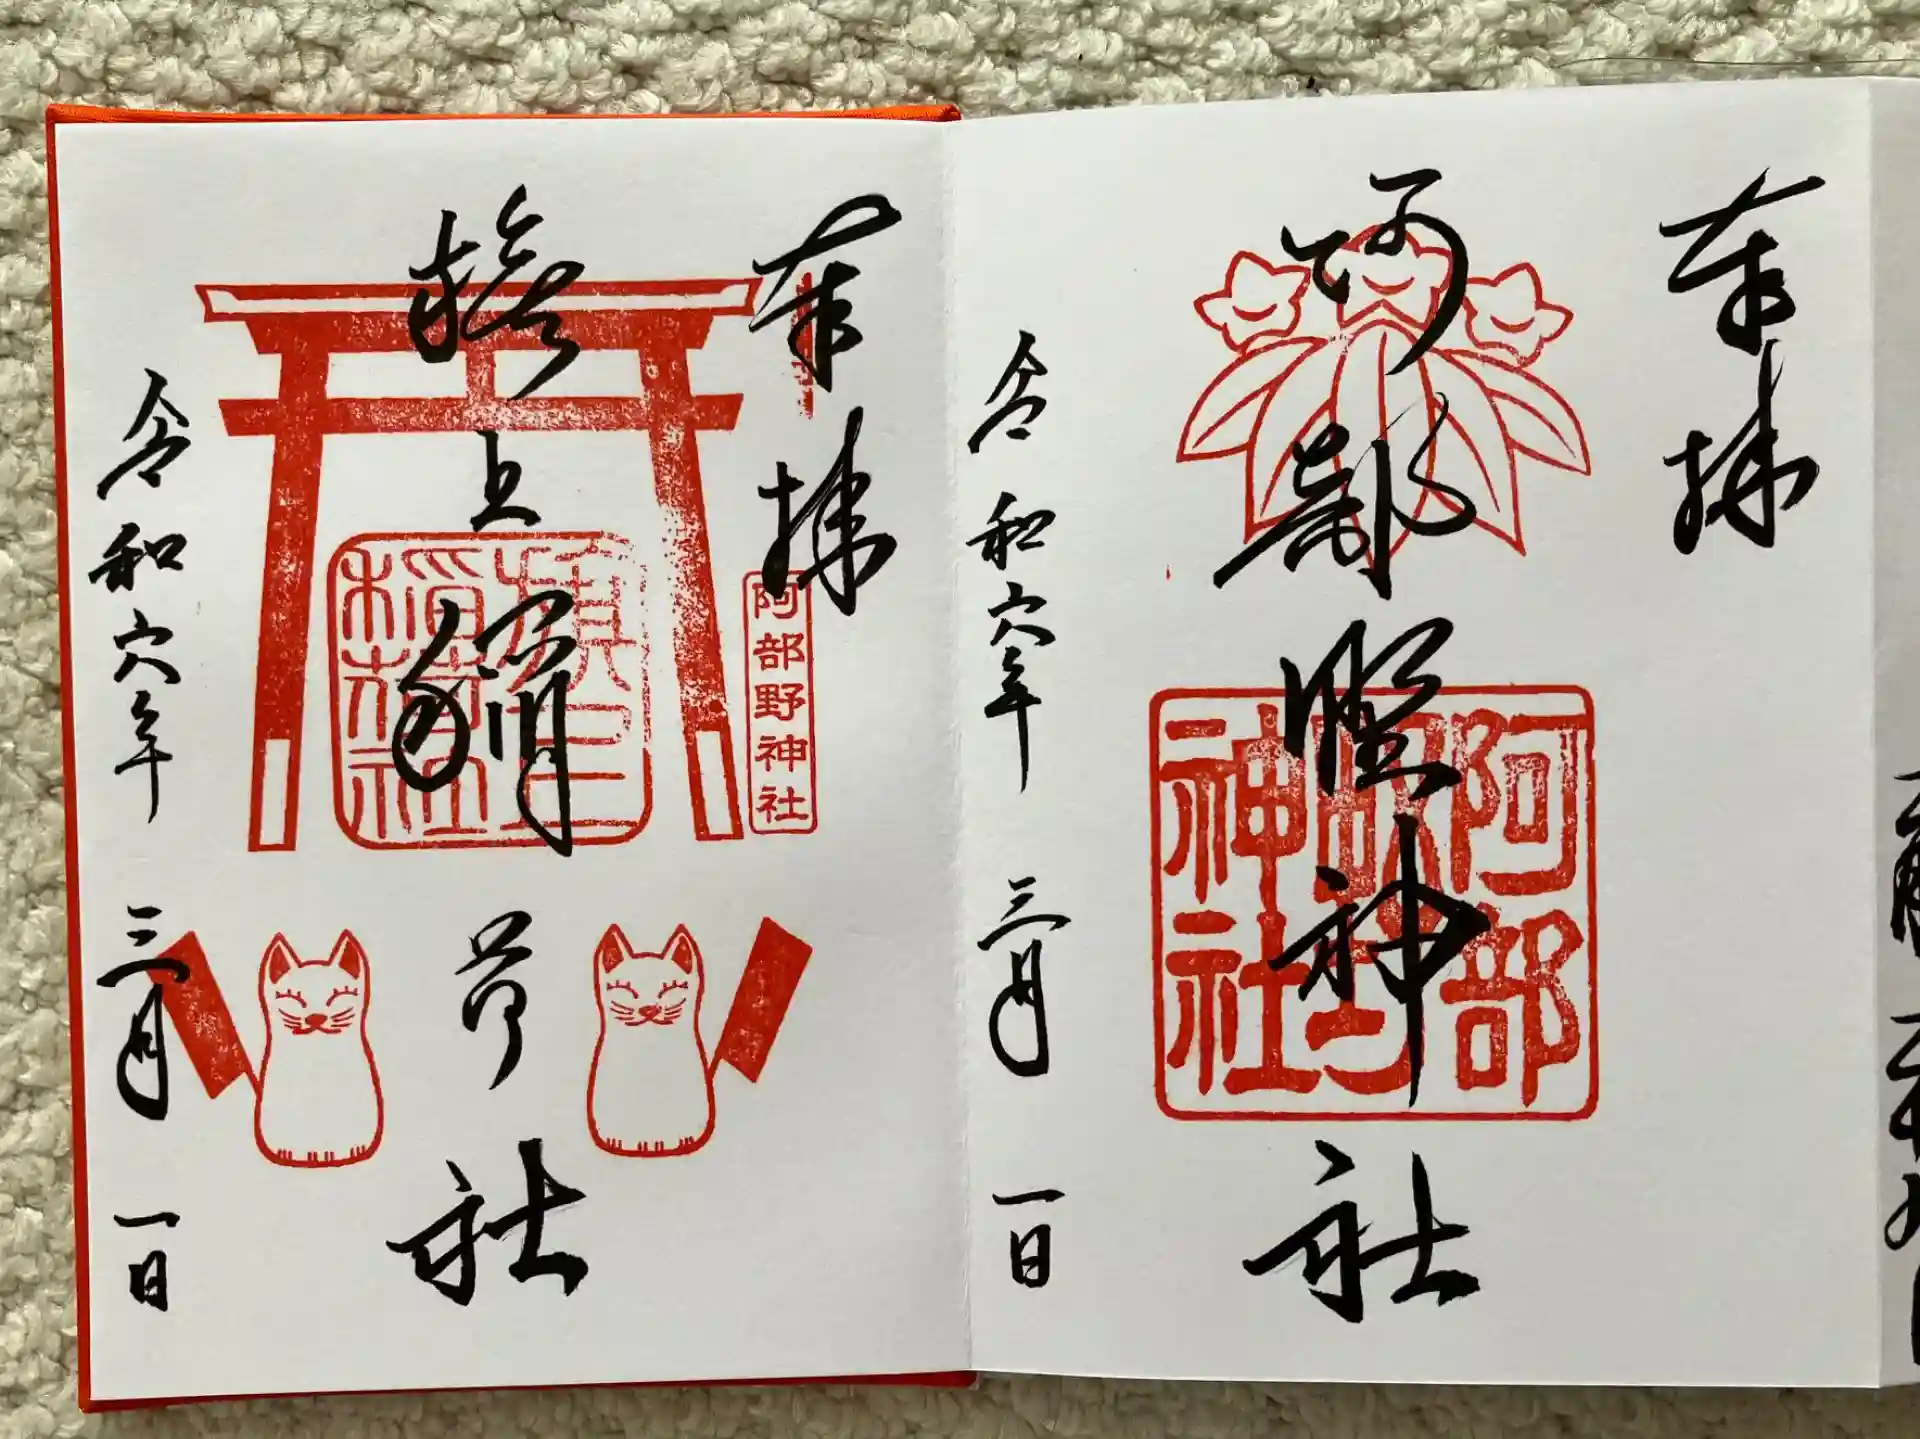 奉拝
阿部野神社
阿部野神社
令和六年三月一日
奉拝
阿部野神社
旗上稲荷社
旗上
稲荷社
令和六年三月一日